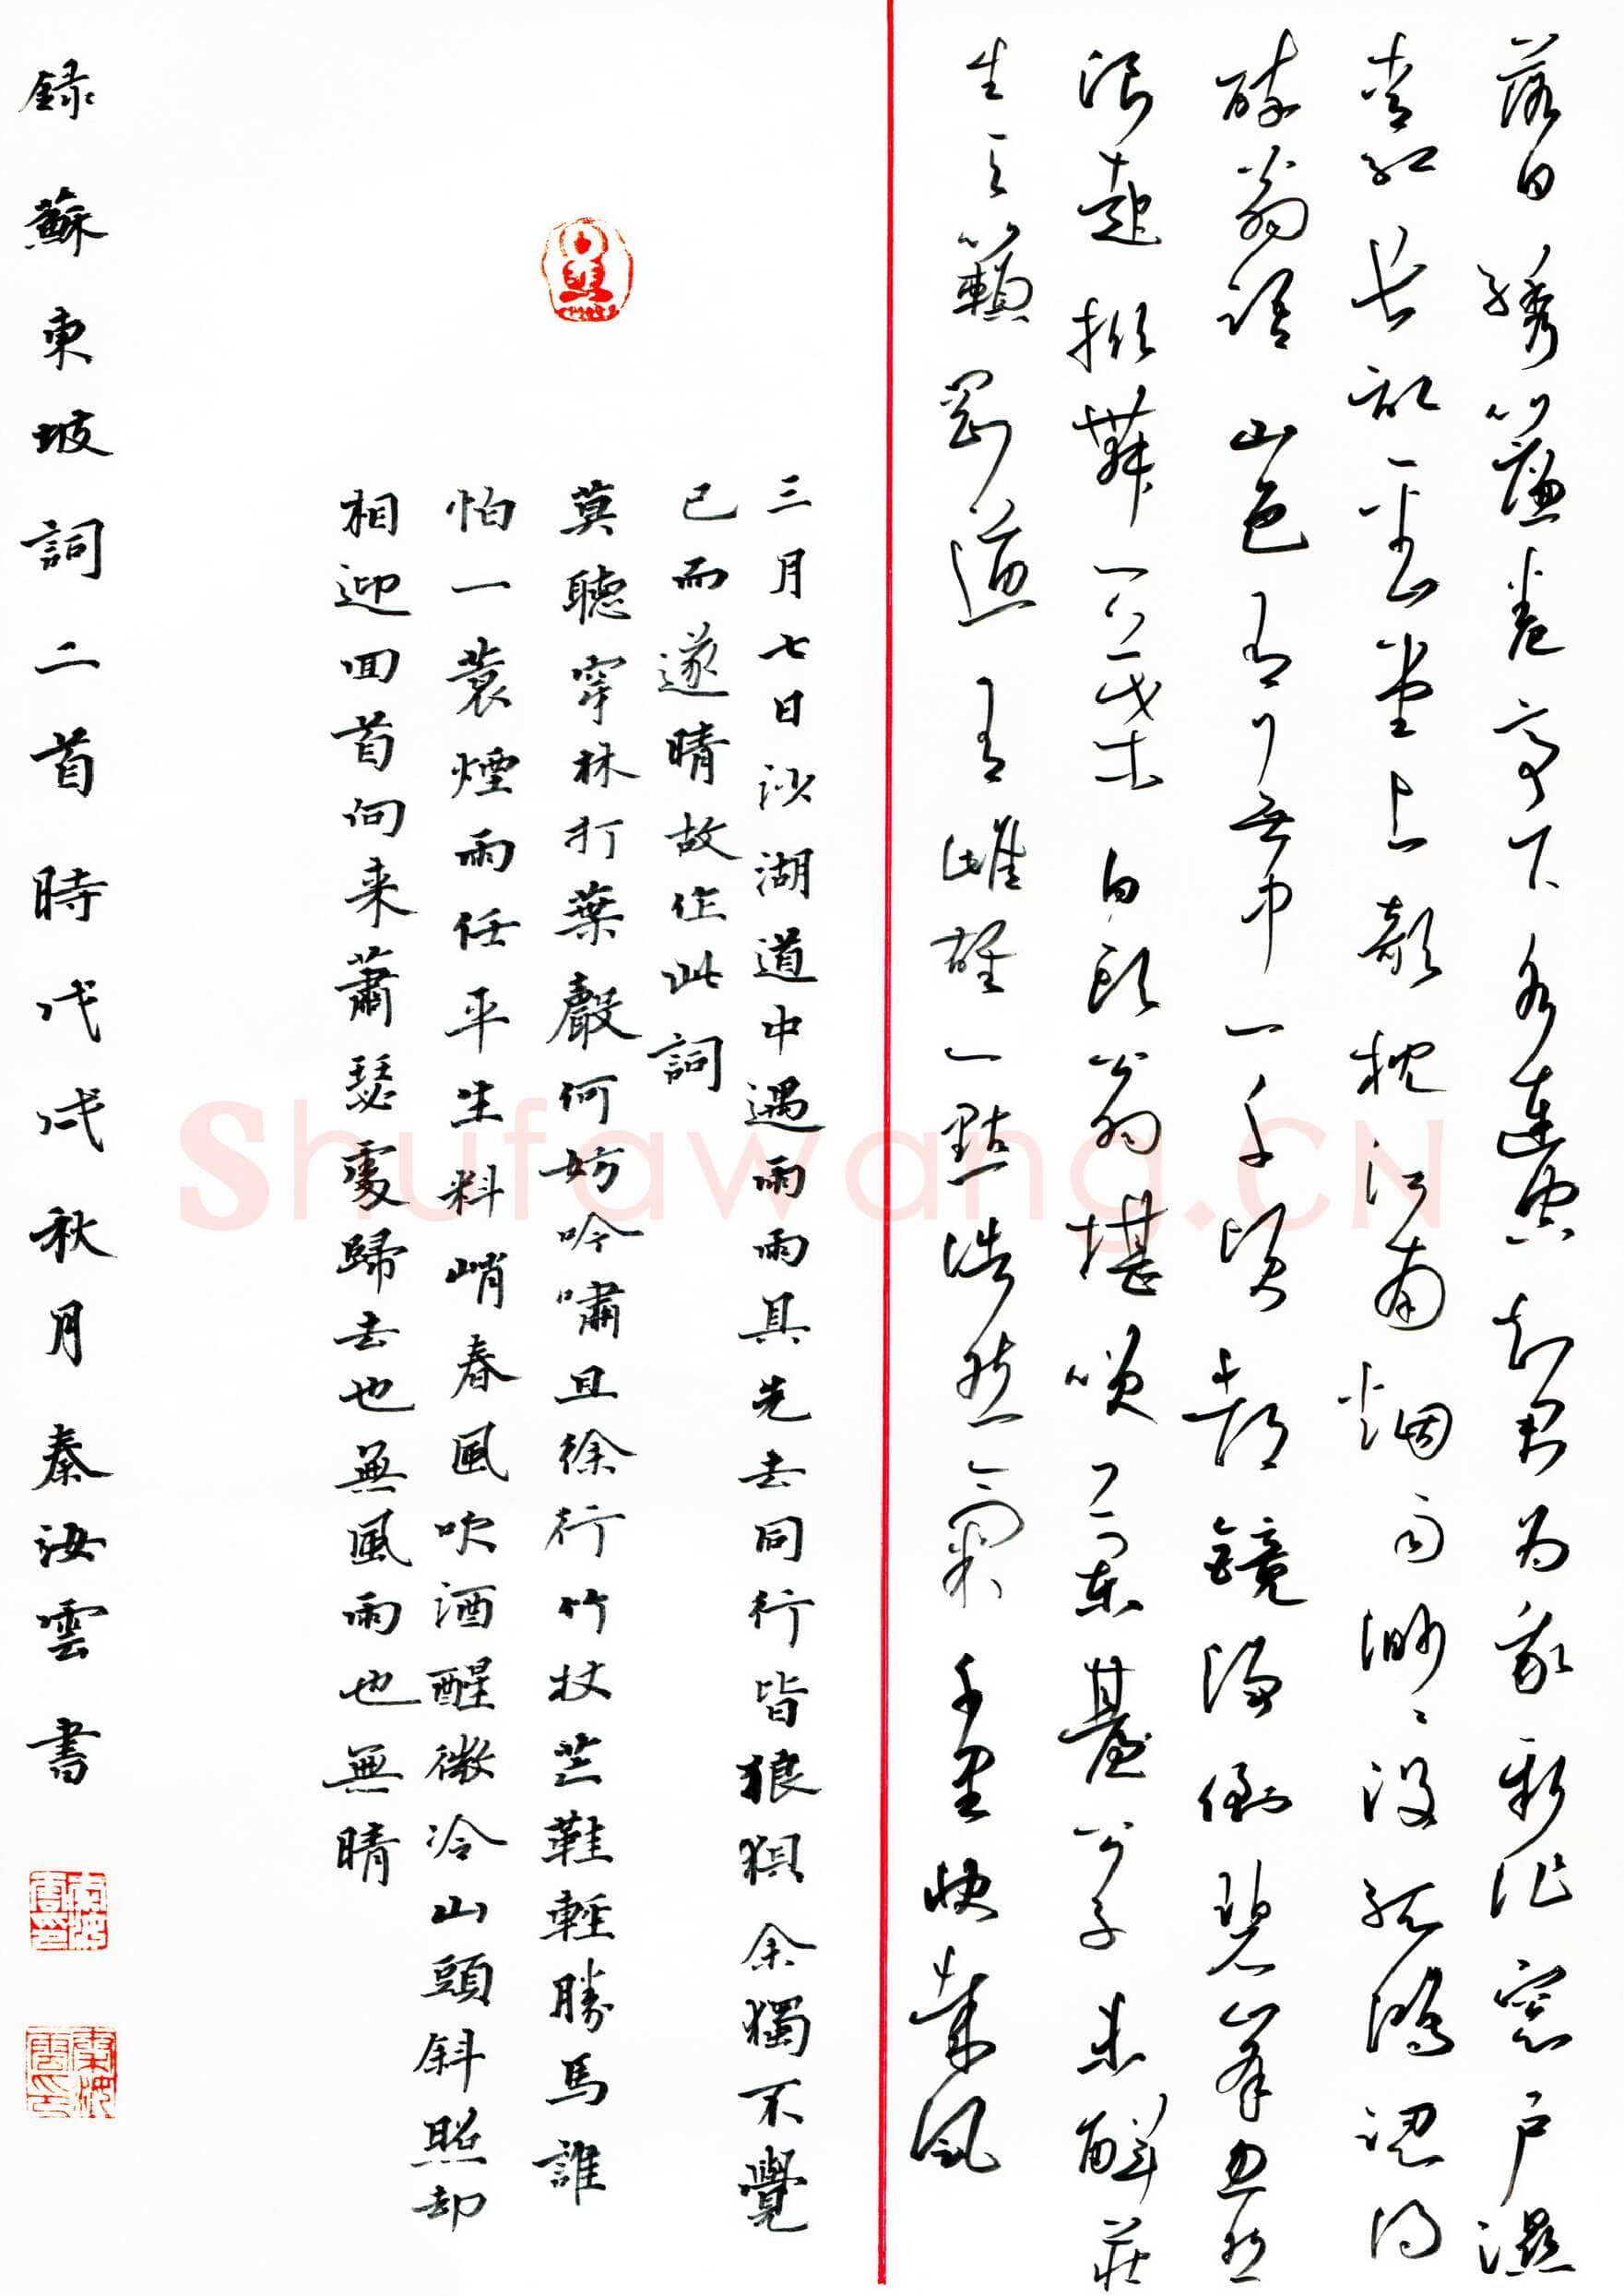 落日繡簾卷亭下水連空知君为我新作窓户濕
青紅長記平山堂上欹枕江南烟雨渺〻没孤鴻認得
醉翁語山色有無中一千頃都鏡淨倒碧峯忽然
浪起掀舞一葉白頭翁堪笑蘭臺公子未解莊
生天籟剛道有雌雄一點浩然氣千里快哉風
三月七日沙湖道中遇雨雨具先去同行皆狼狽余獨不覺
已而遂晴故作此詞
莫聽穿林打葉聲何妨吟嘯且徐行竹杖芒鞋輕勝馬誰
怕一蓑煙雨任平生料峭春風吹酒醒微冷山頭斜照却
相迎回首向来蕭瑟處歸去也無風雨也無晴
録蘇東坡詞二首時戊戌秋月秦汝雲書
Shufawang.CN